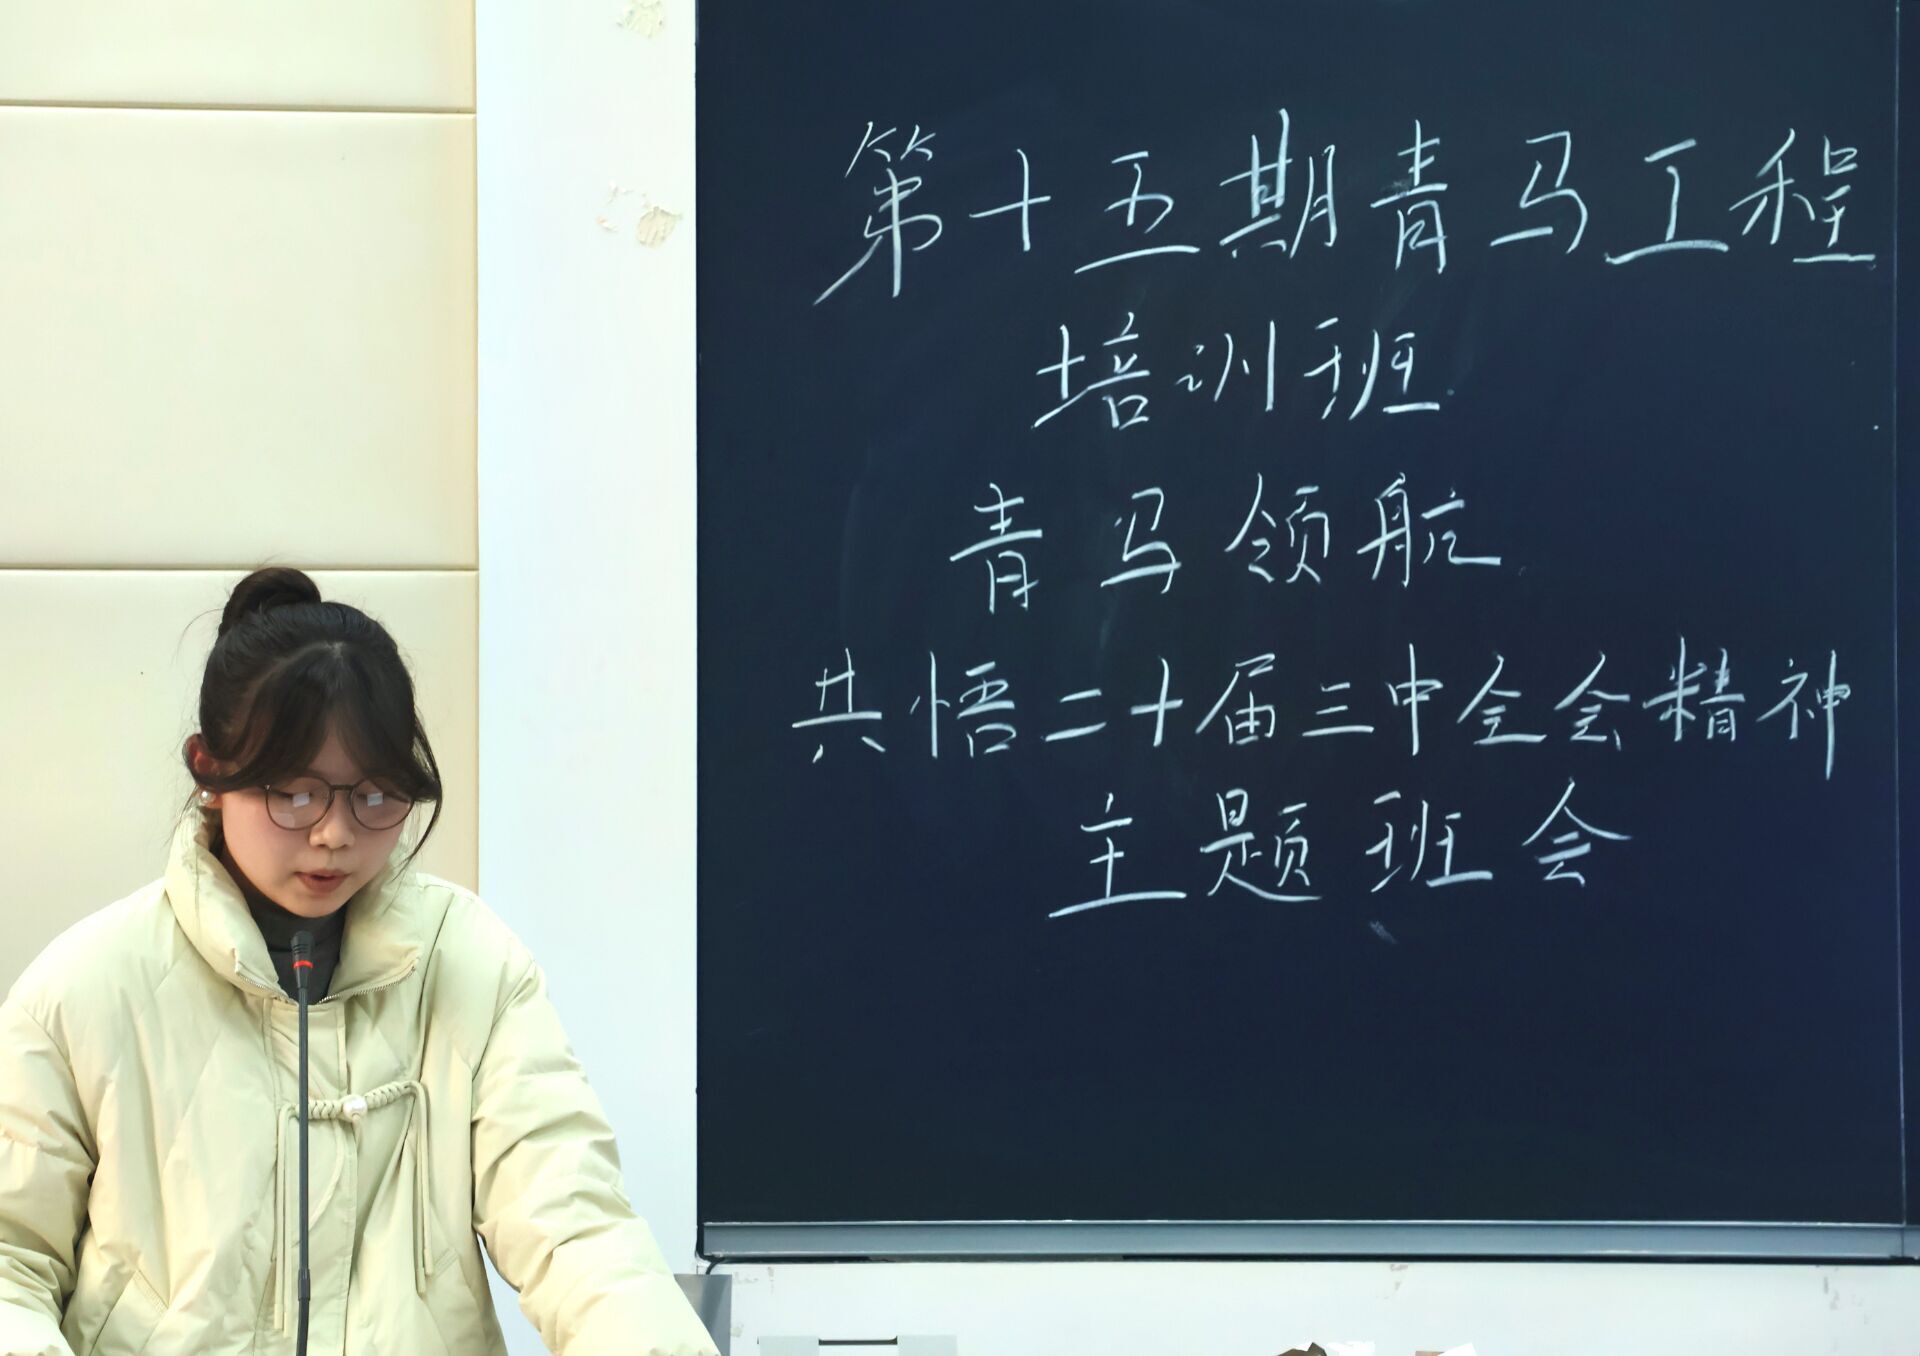 第十五期青马工程
培训班
青马领航
共悟二十届三中全会精神
主题班会